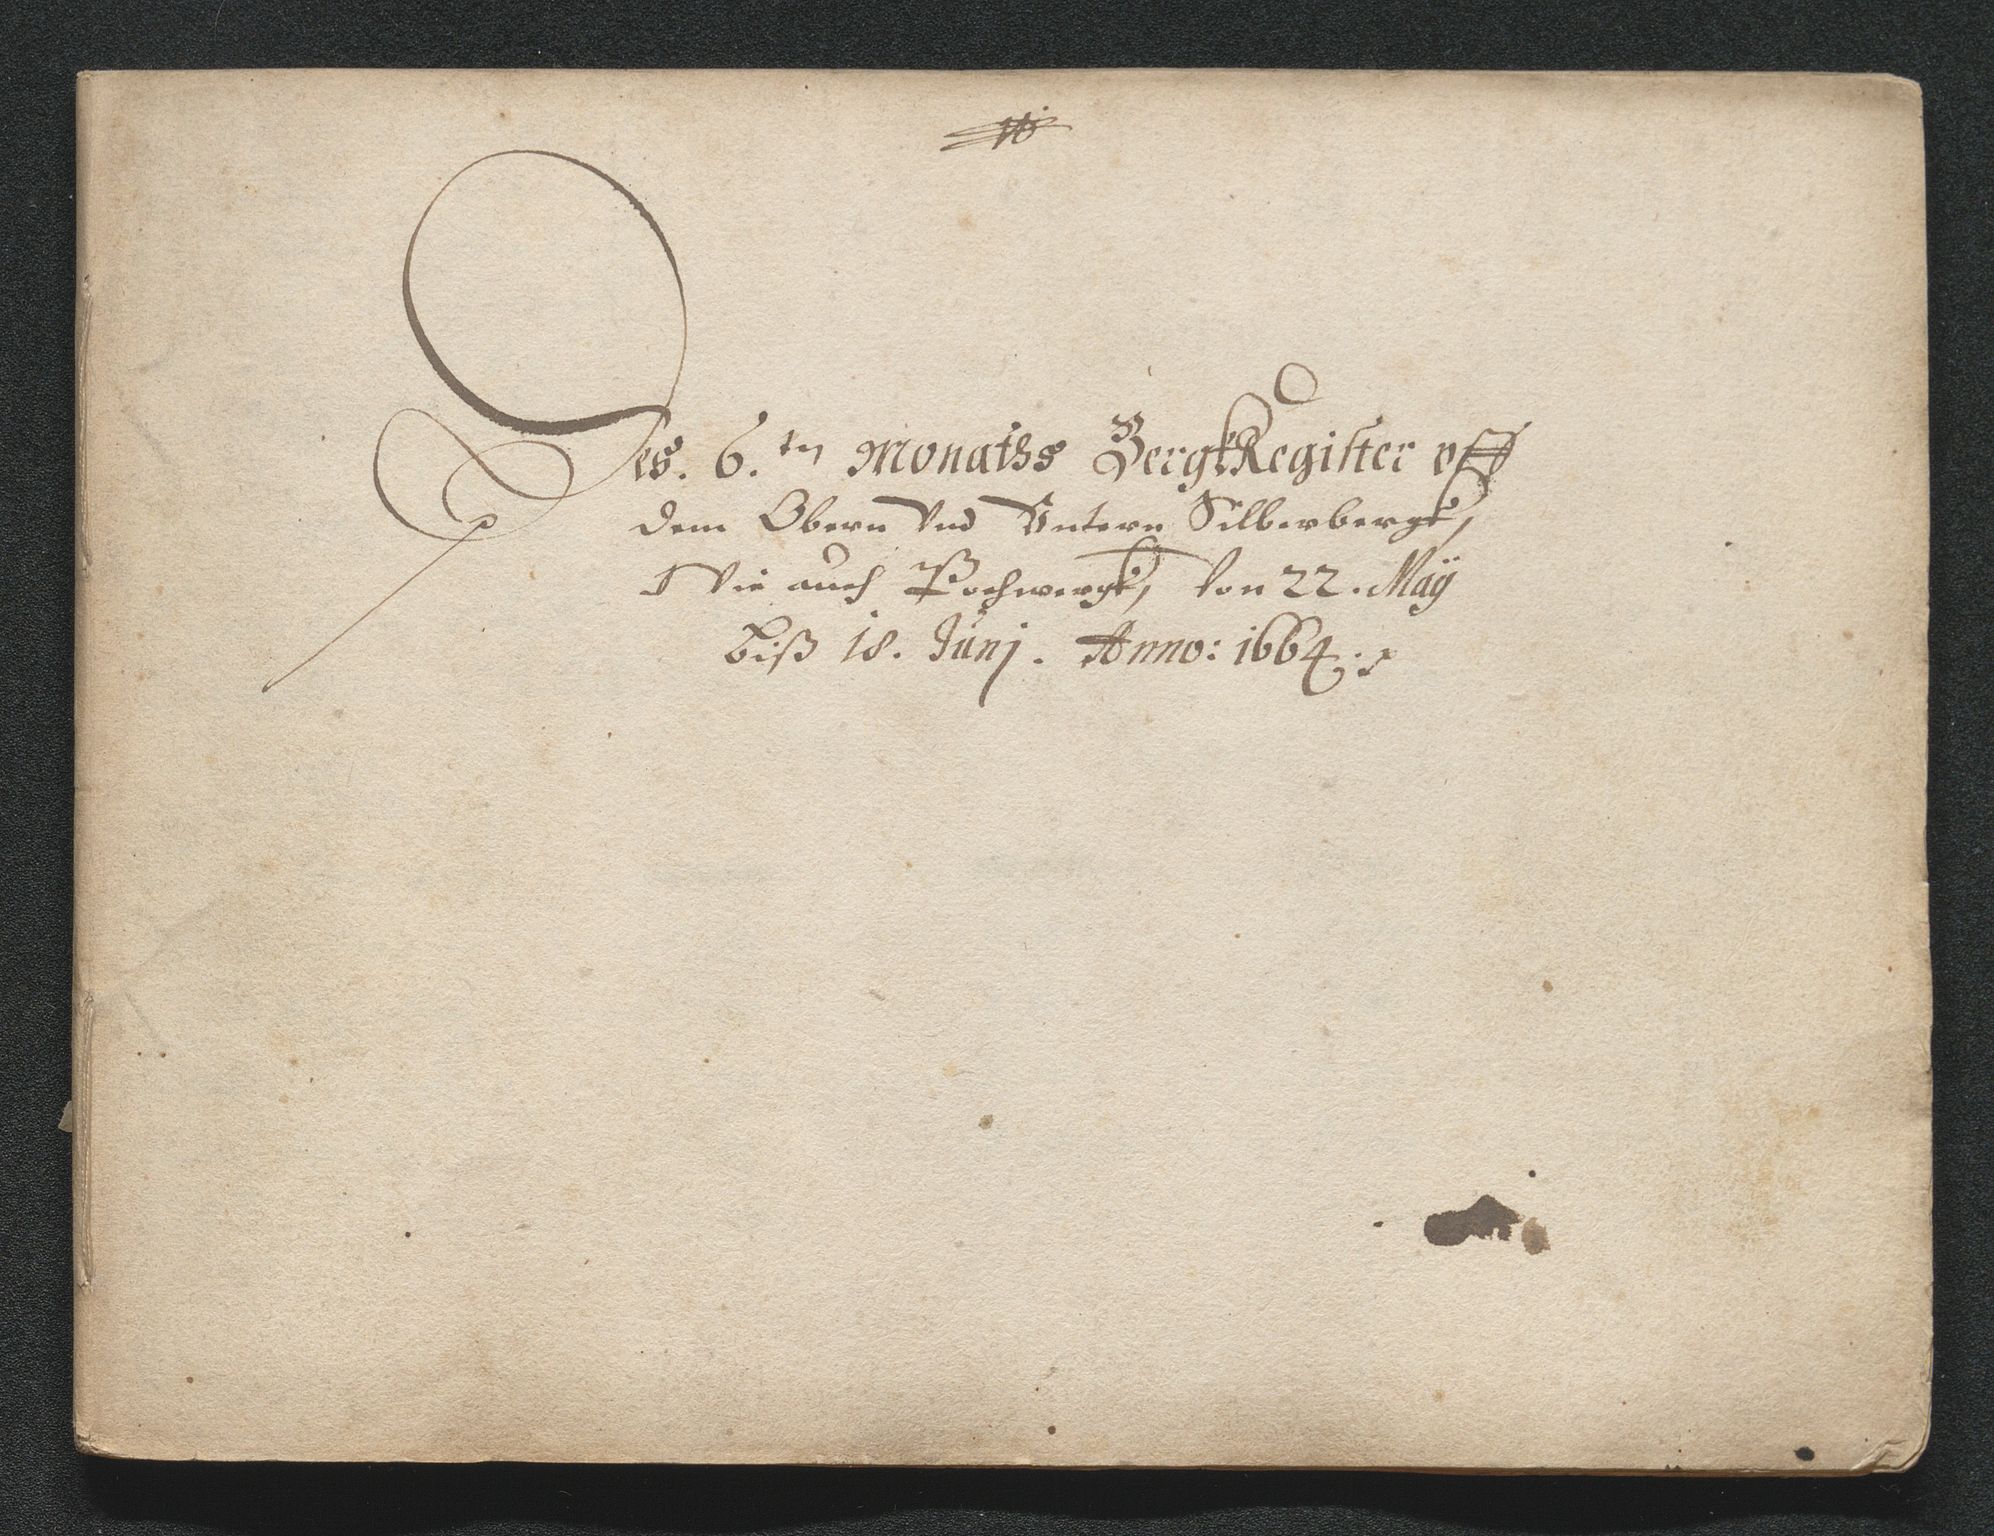 Des. 6.ten Monaths BergkRegister vff
dem Obern Vnd Vntern Silberbergk,
Wie auch Pochwergk, Von 22. Maÿ
biß 18. Junj. Anno: 1664.